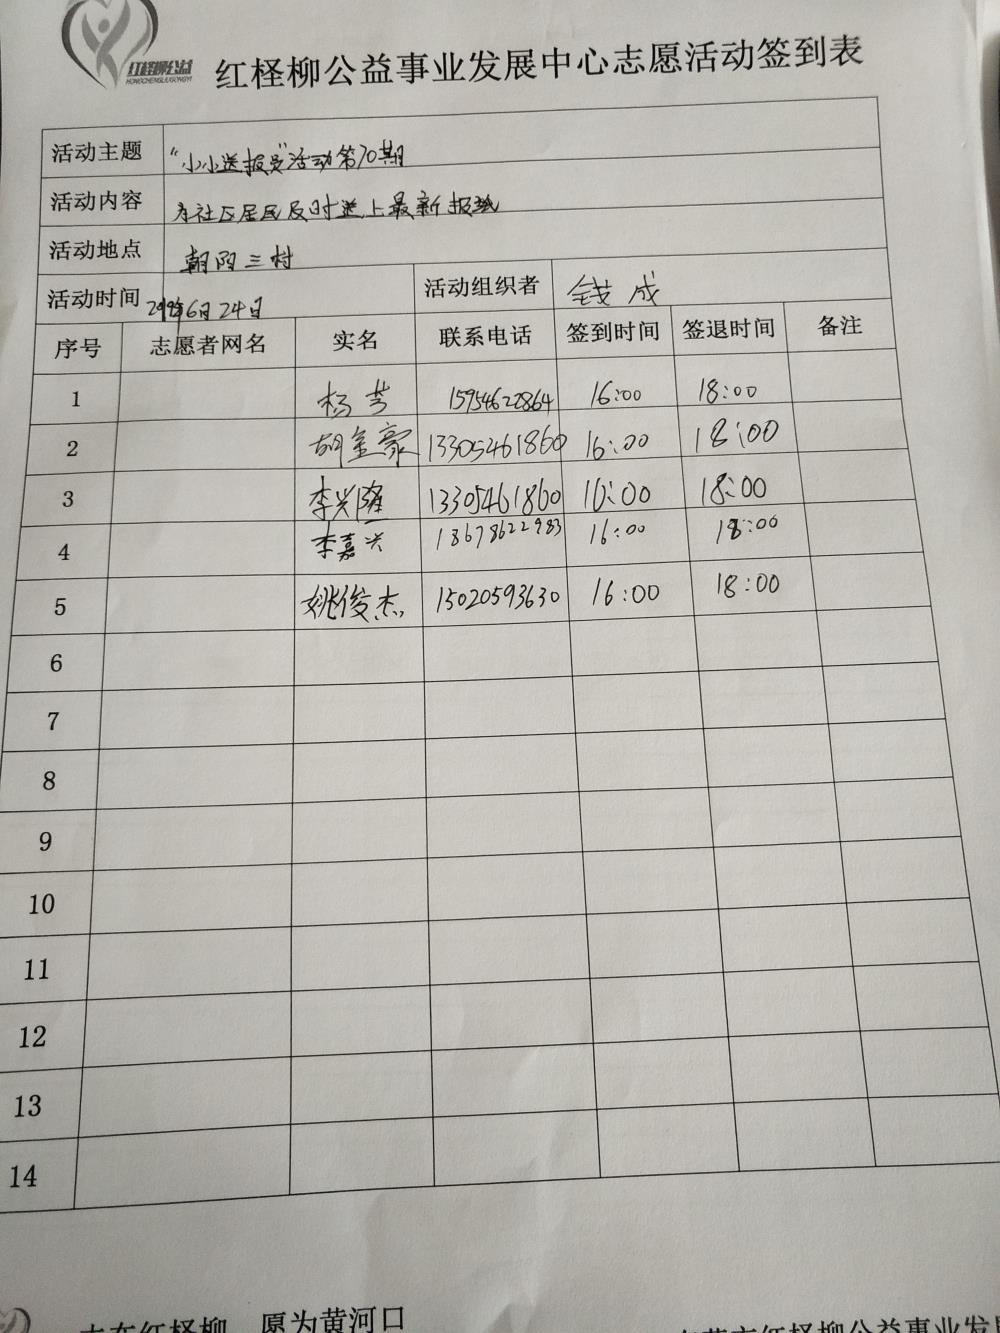 红柽柳公益
HONGCHENGLIUGONGYI
红柽柳公益事业发展中心志愿活动签到表
活动主题 “小小送报员”活动第70期
活动内容 为社区居民及时送上最新报纸
活动地点 朝阳三村
活动时间 6月24日 活动组织者 钱成
序号 志愿者网名 实名 联系电话 签到时间 签退时间 备注
1 杨芳 15954622864 16:00 18:00
2 胡金豪 13305461860 16:00 18:00
3 李兴隆 13305461860 16:00 18:00
4 李嘉兴 18678622983 16:00 18:00
5 姚俊杰 15020593630 16:00 18:00
6
7
8
9
10
11
12
13
14
志在红柽柳 愿为黄河口
红柽柳公益事业发展